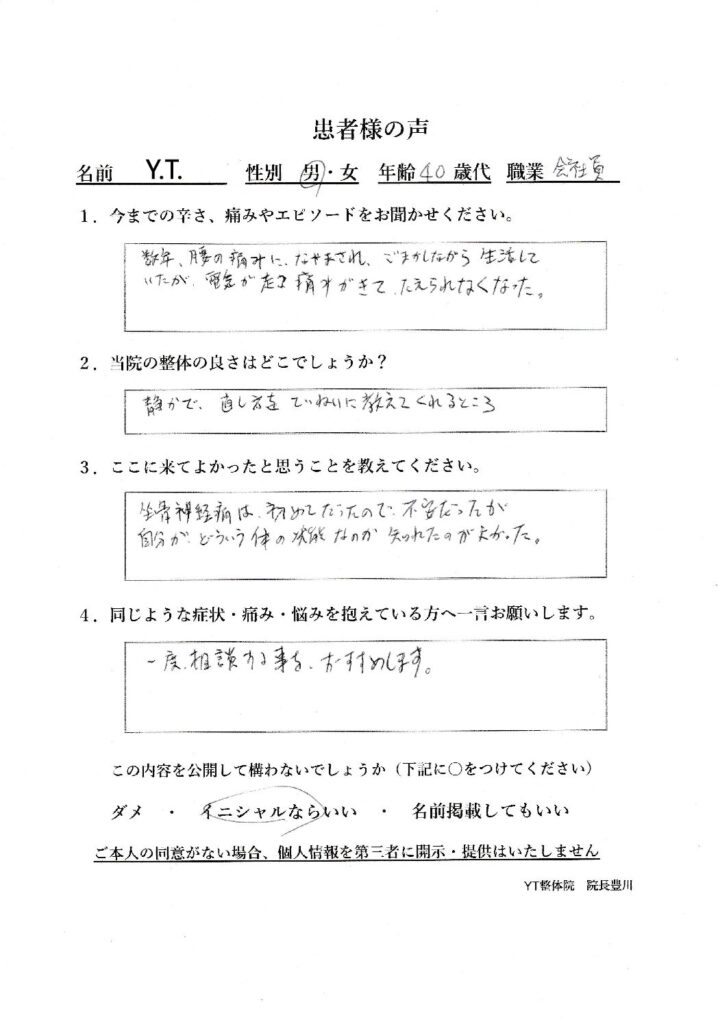 患者様の声
名前 Y.T. 性別 男・女 年齢 40 歳代 職業 会社員
1．今までの辛さ、痛みやエピソードをお聞かせください。
数年、腰の痛みに、なやまされ、ごまかしながら 生活して
いたが、電気が走る痛みがきて、たえられなくなった。
2．当院の整体の良さはどこでしょうか？
静かで、直し方を ていねいに教えてくれるところ
3．ここに来てよかったと思うことを教えてください。
坐骨神経痛は、初めてだったので、不安だったが
自分が、どういう体の状態なのか 知れたのがよかった。
4．同じような症状・痛み・悩みを抱えている方へ一言お願いします。
一度、相談する事を、おすすめします。
この内容を公開して構わないでしょうか（下記に○をつけてください）
ダメ ・ イニシャルならいい ・ 名前掲載してもいい
ご本人の同意がない場合、個人情報を第三者に開示・提供はいたしません
YT整体院 院長豊川